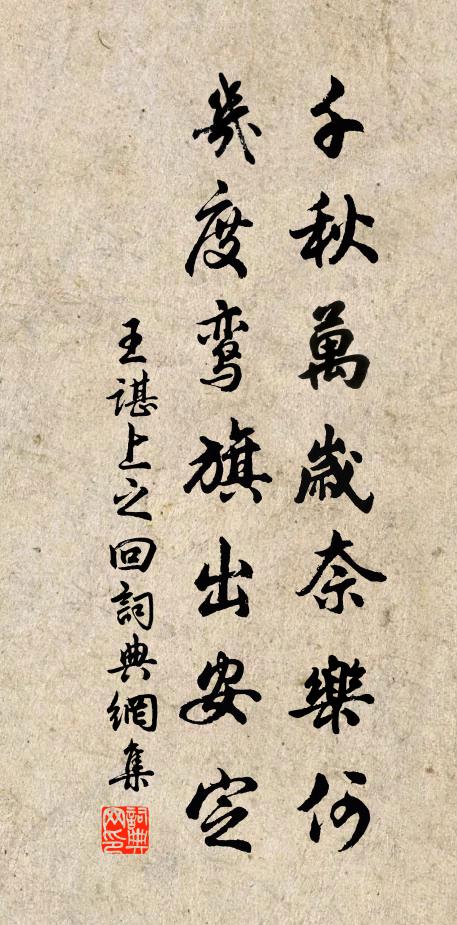 千秋萬歲奈樂何
幾度鸾旗出安定
王諶上之回詞典網集
詞典网印